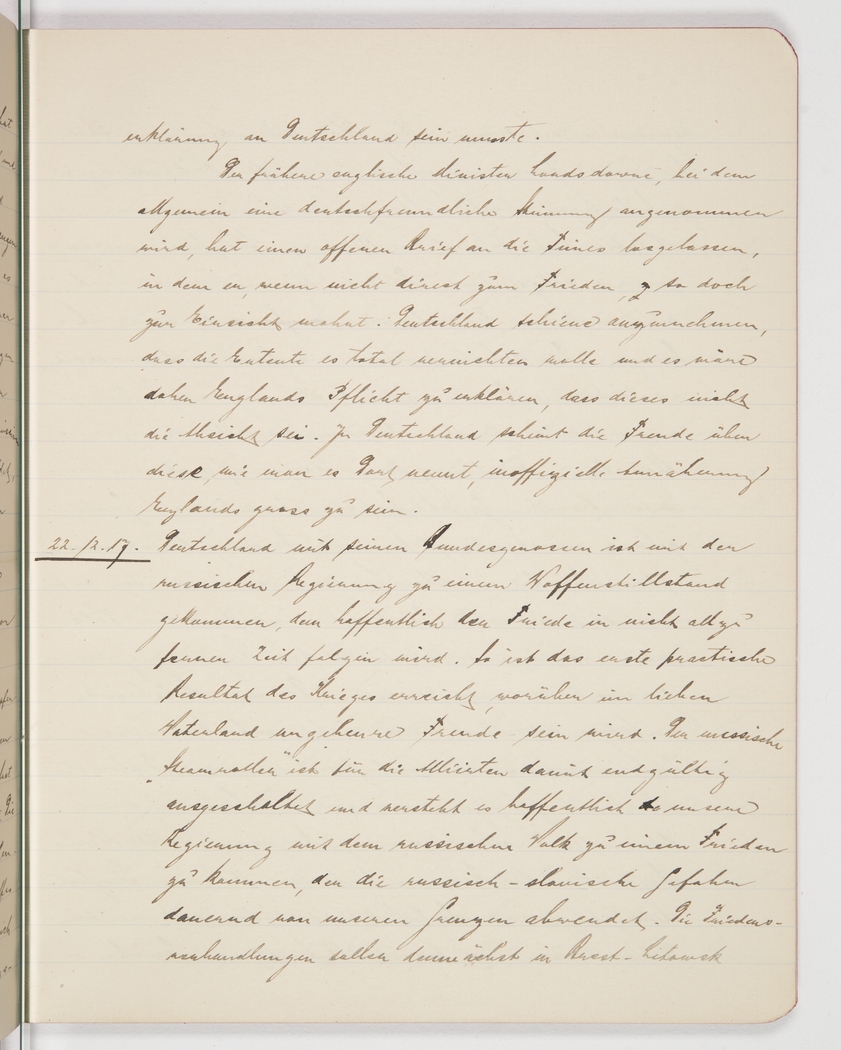 erklärung an Deutschland sein musste.
Der frühere englische Minister Landsdowne, bei dem
allgemein eine deutschfreundliche Stimmung angenommen
wird, hat einen offenen Brief an die Times losgelassen,
in dem er, wenn nicht direct zum Frieden, so doch
zur Einsicht mahnt. Deutschland schiene anzunehmen,
dass die Entente es total vernichten wolle und es wäre
daher Englands Pflicht zu erklären, dass dieses nicht
die Absicht sei. In Deutschland scheint die Freude über
diese, wie man es dort nennt, inoffizielle Annäherung
Englands gross zu sein.
22.12.17. Deutschland mit seinen Bundesgenossen ist mit der
russischen Regierung zu einem Waffenstillstand
gekommen, dem hoffentlich der Friede in nicht allzu
fernen Zeit folgen wird. So ist das erste practische
Resultat des Krieges erreicht, worüber im lieben
Vaterland ungeheure Freude sein wird. Der russische
„Steamroller" ist für die Alliirten damit endgültig
ausgeschaltet und versteht es hoffentlich unsere
Regierung mit dem russischen Volk zu einem Frieden
zu kommen, der die russisch-slavische Gefahr
dauernd von unseren Grenzen abwendet. Die Friedens-
verhandlungen sollen demnächst in Brest-Litowsk